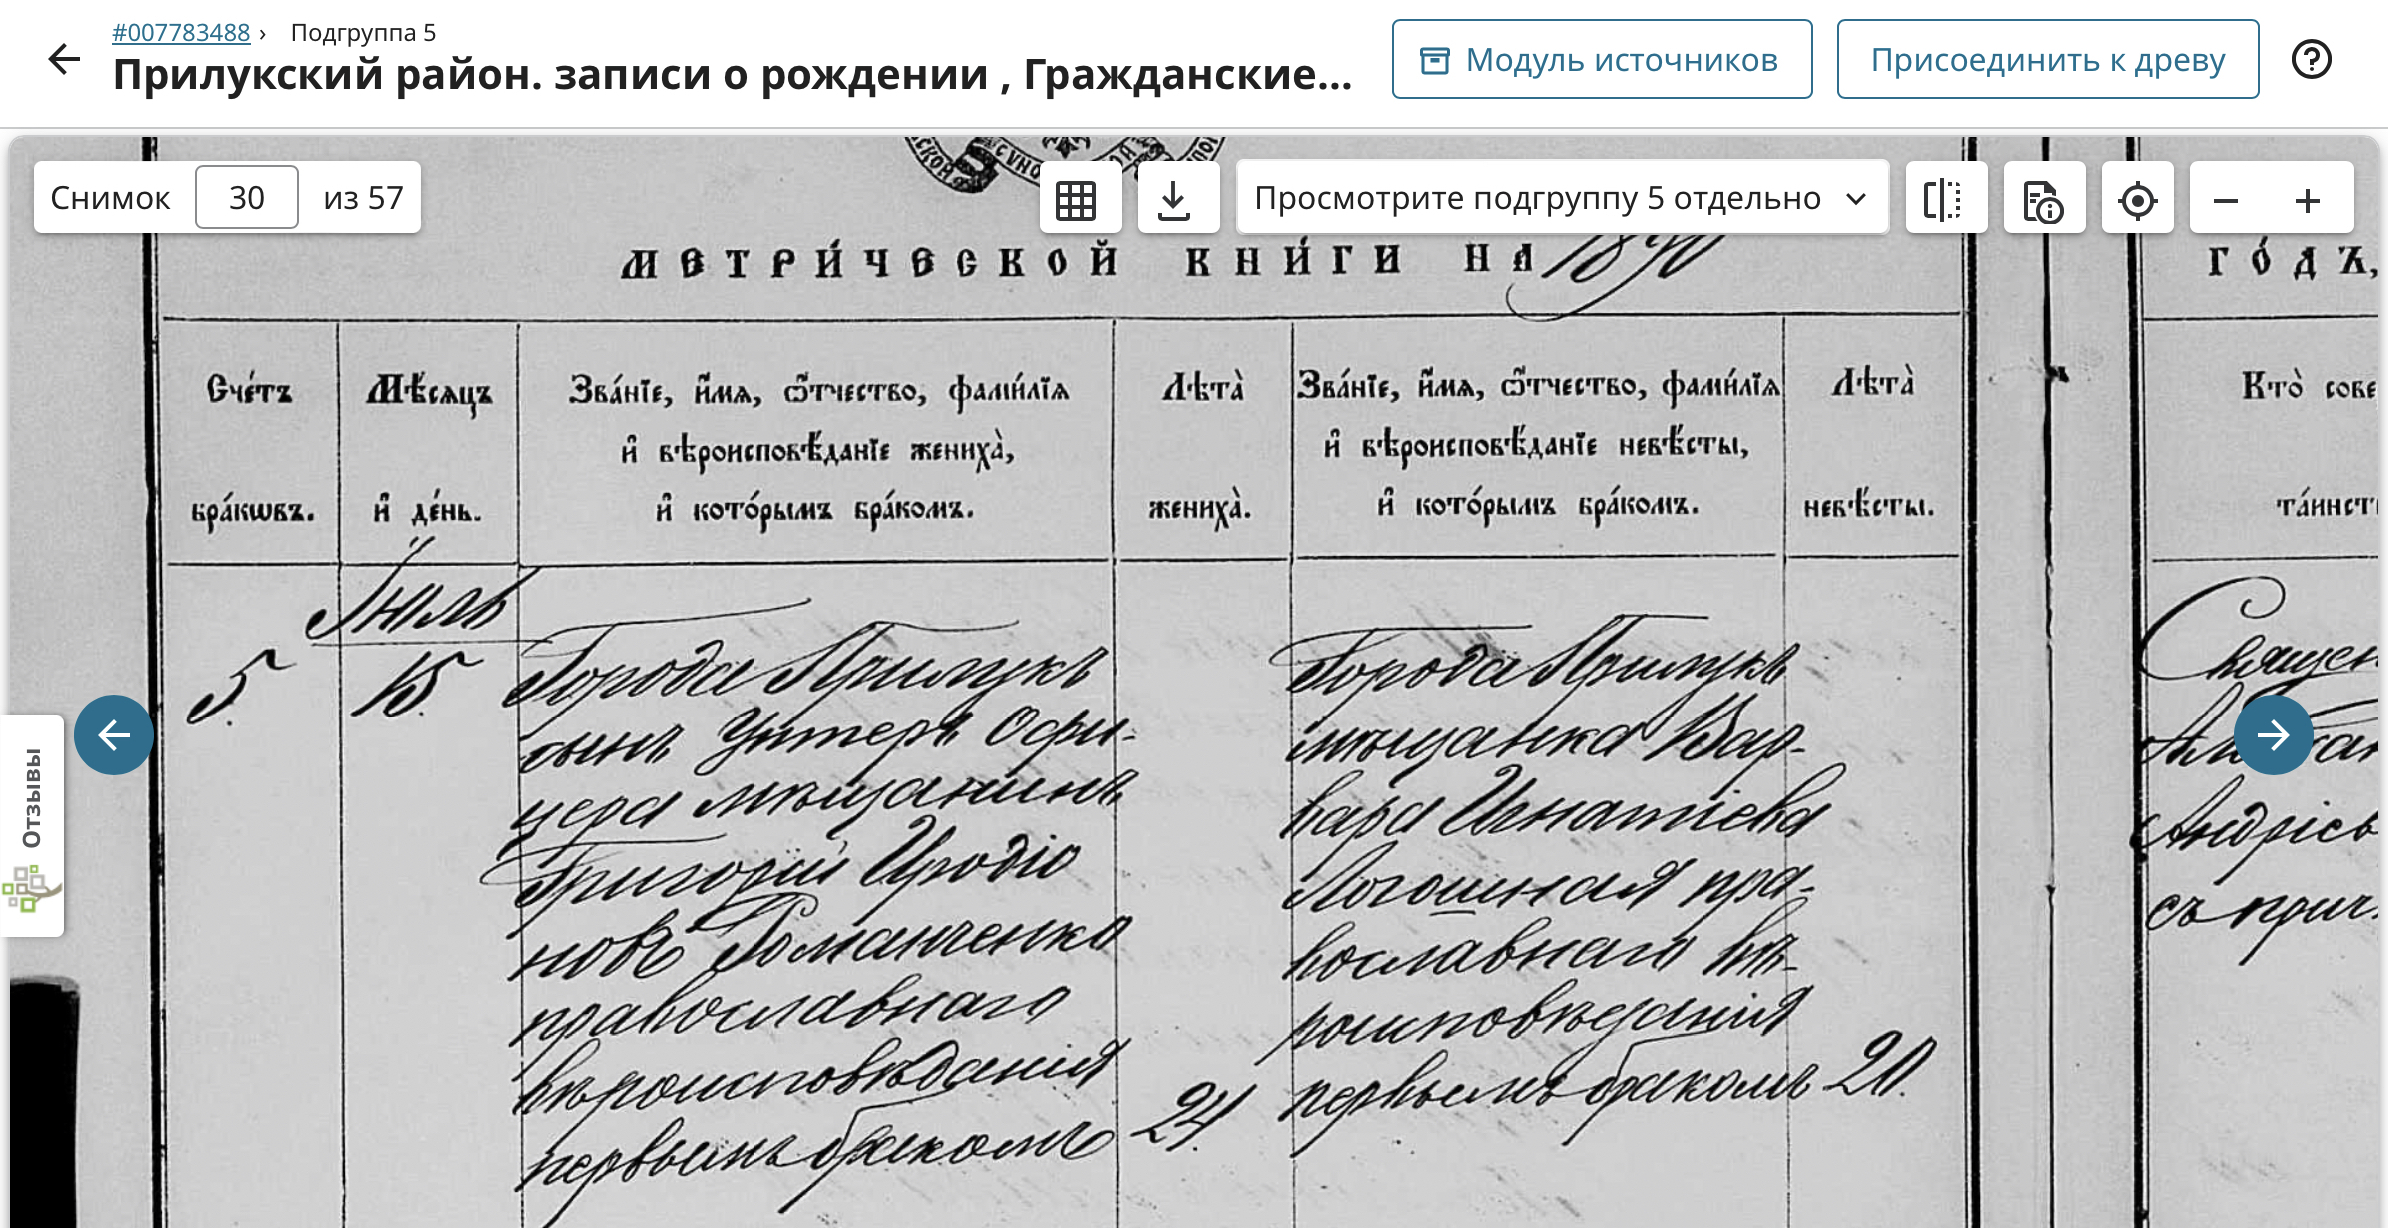 #007783488 › Подгруппа 5
Прилукский район. записи о рождении , Гражданские...
Модуль источников
Присоединить к древу
Снимок 30 из 57
Просмотрите подгруппу 5 отдельно
МЕТРИ́ЧЕСКОЙ КНИ́ГИ НА 1890
ГО́ДЪ,
Сче́тъ
бра́кѡвъ.
Мѣ́сяцъ
и҆ де́нь.
Зва́нїе, и҆́мѧ, ѻ҆́тчество, фами́лїѧ
и҆ вѣроисповѣ́данїе жениха̀,
и҆ кото́рымъ бра́комъ.
Лѣта̀
жениха̀.
Зва́нїе, и҆́мѧ, ѻ҆́тчество, фами́лїѧ
и҆ вѣроисповѣ́данїе невѣ́сты,
и҆ кото́рымъ бра́комъ.
Лѣта̀
невѣ́сты.
Кто̀ сове
та́инст
Іюль
5.
15.
Города Прилукъ
сынъ Унтеръ Офи-
цера мѣщанинъ
Григорій Иродіо
новъ Романченко
православнаго
вѣроисповѣданія
первымъ бракомъ
24.
Города Прилукъ
мѣщанка Вар-
вара Игнатіева
православнаго вѣ-
роисповѣданія
первымъ бракомъ
20.
Священ
Андріев
съ прич
Отзывы